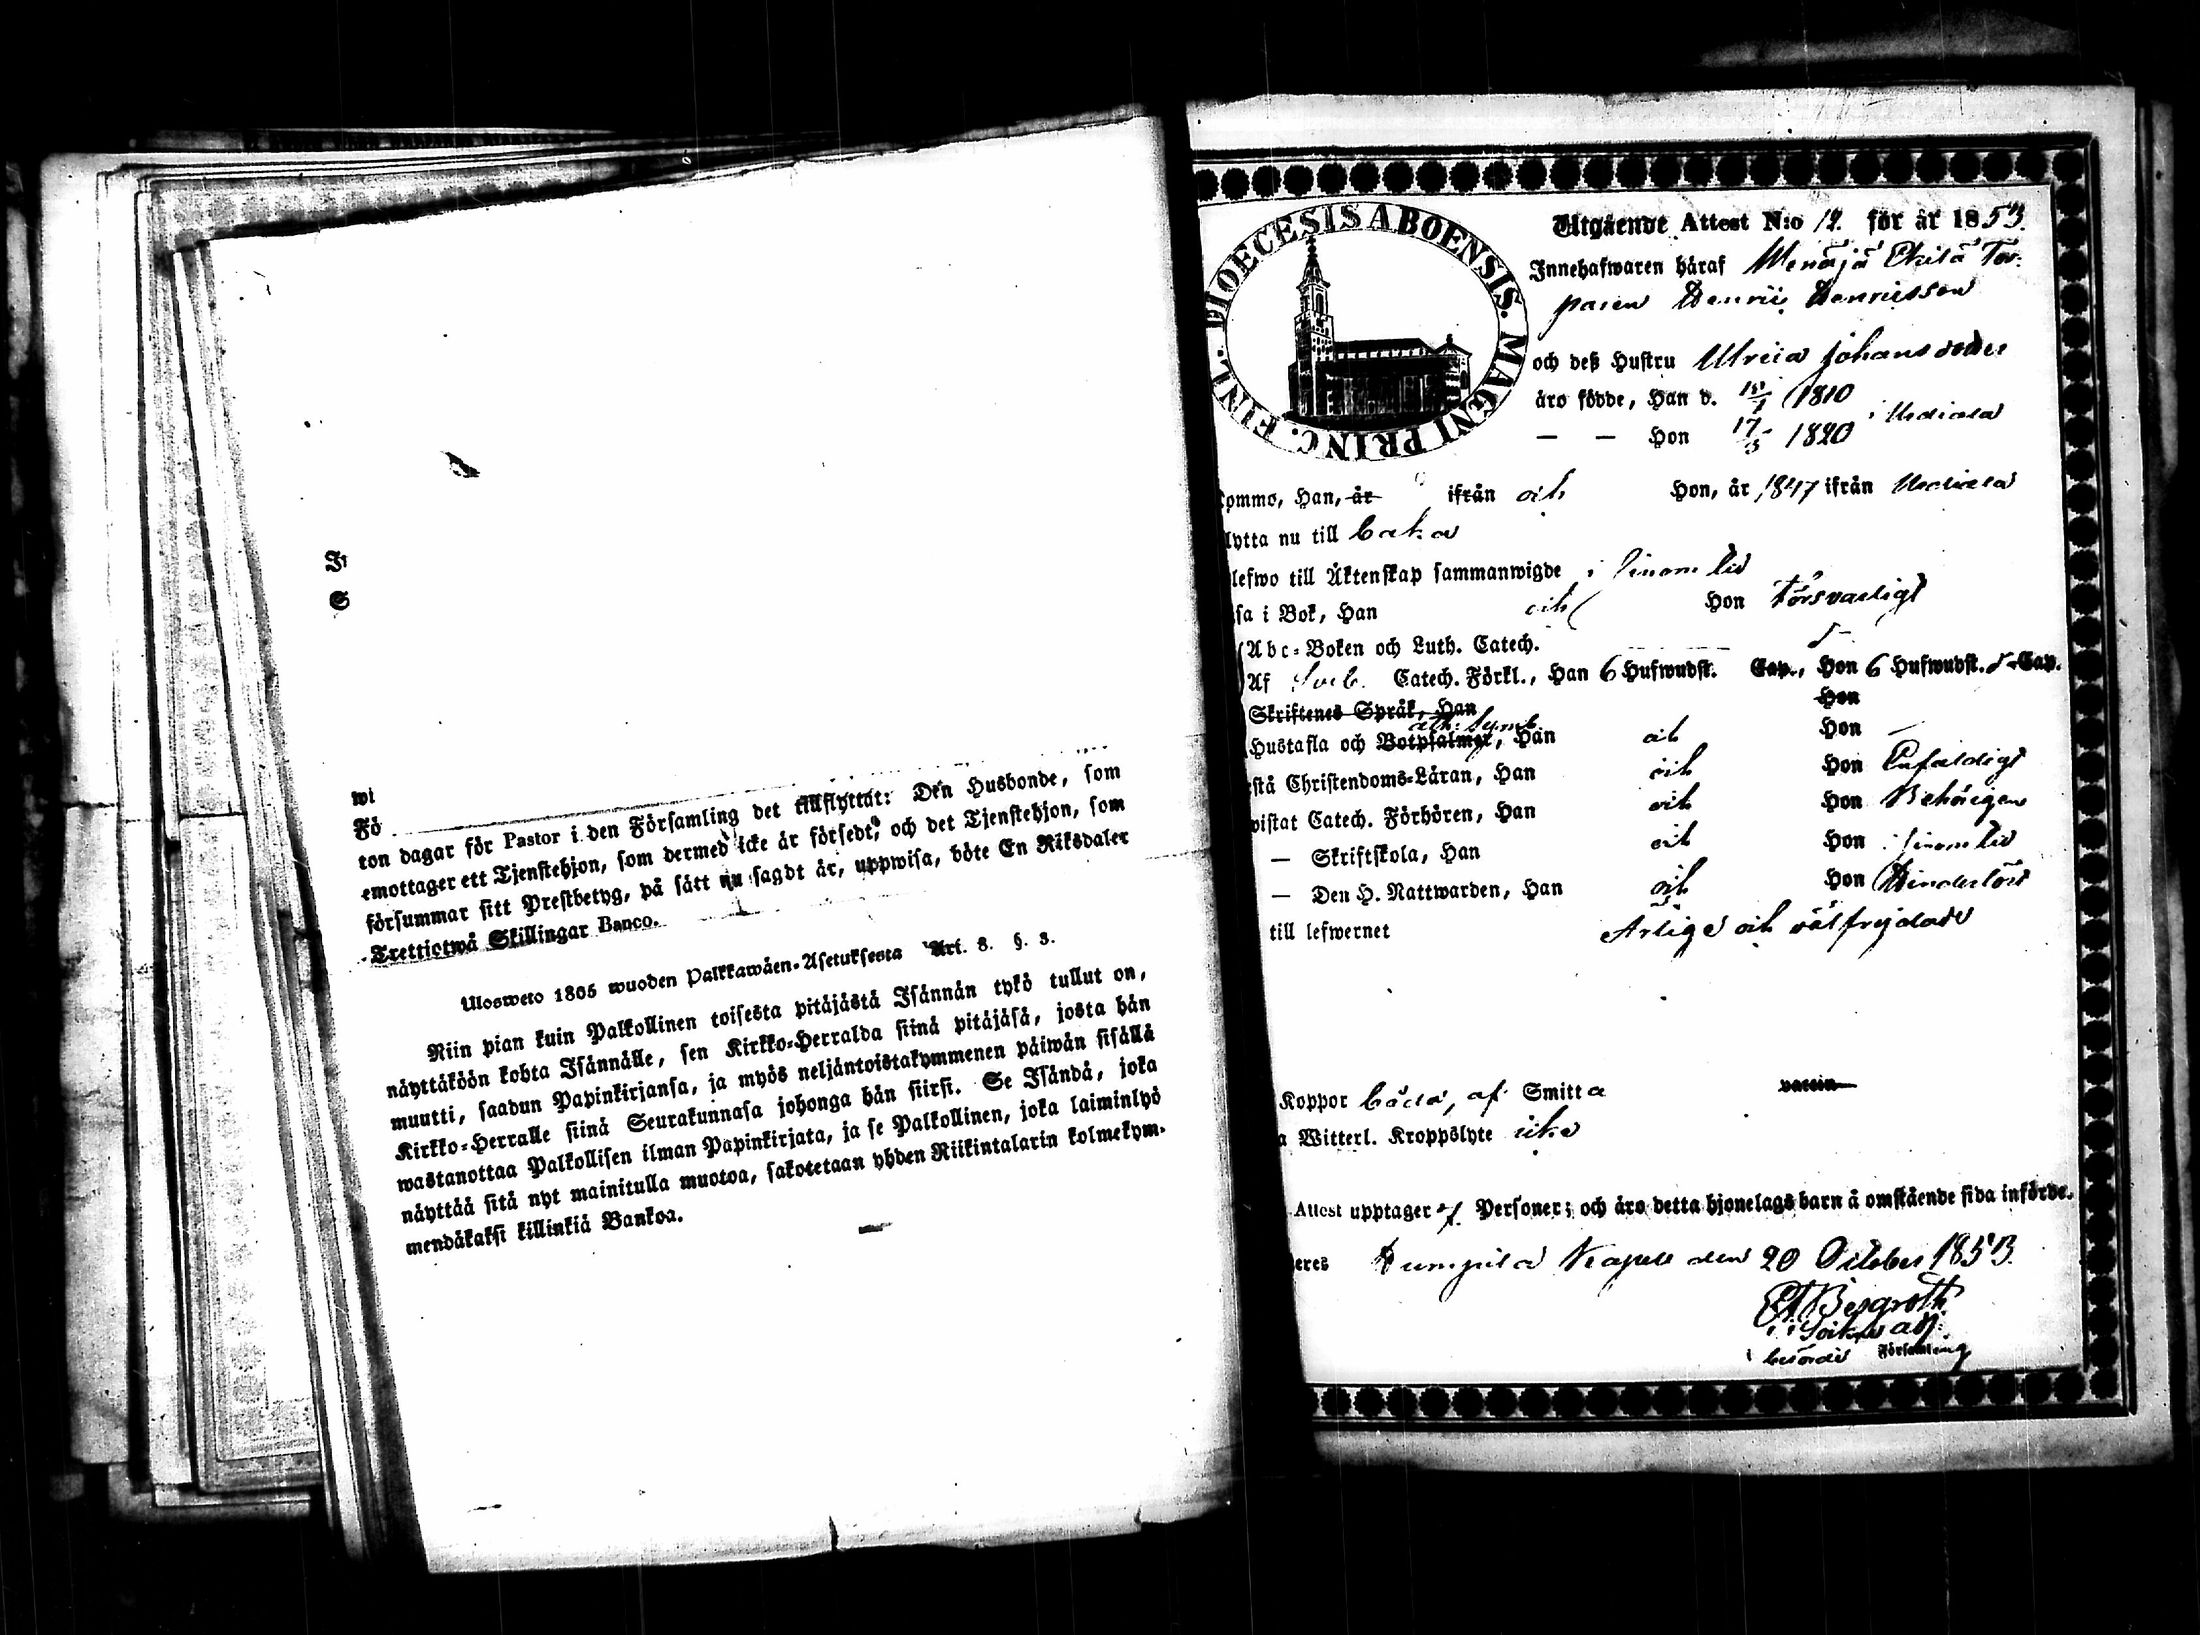 J
S
wi
Fö
ton dagar för Pastor i den Församling det tillflyttat: Den Husbonde, som
emottager ett Tjenstehjon, som dermed icke är försedt, och det Tjenstehjon, som
försummar sitt Prestbetyg, på sätt nu sagdt är, uppwisa, böte En Riksdaler
Trettiotwå Skillingar Banco.
Ulosweto 1805 wuoden Palkkawäen-Asetuksesta Art. 8. §. 3.
Niin pian kuin Palkollinen toisesta pitäjästä Isännän tykö tullut on,
näyttäköön kohta Isännälle, sen Kirkko-Herralda siinä pitäjäsä, josta hän
muutti, saadun Papinkirjansa, ja myös neljäntoistakymmenen päiwän sisällä
Kirkko-Herralle siinä Seurakunnasa johonga hän siirsi. Se Isändä, joka
wastanottaa Palkollisen ilman Papinkirjata, ja se Palkollinen, joka laiminlyö
näyttää sitä nyt mainitulla muotoa, sakotetaan yhden Riikintalarin kolmekym-
mendäkaksi killinkiä Bankoa.
DIOECESIS ABOENSIS. MAGNI PRINC. FINL.
Utgående Attest N:o 12. för år 1853.
Innehafwaren häraf Menäjä Tor-
paren Henric Henricsson
och deß Hustru Ulrica Johansdotter
äro födde, Han d. 1810
— — Hon 17/3 1820
kommo, Han, år ifrån och Hon, år 1847 ifrån
flytta nu till
lefwo till Äktenskap sammanwigde i sinom tid
läsa i Bok, Han och Hon Försvarligt
Abc-Boken och Luth. Catech.
Af Sveb. Catech. Förkl., Han 6 Hufwudst. Cap., Hon 6 Hufwudst. Cap.
Skriftenes Språk, Han Hon
Ath: Symb.
Hustafla och Botpsalmer, Han och Hon
Christendoms-Läran, Han och Hon Enfaldigt
wistat Catech. Förhören, Han och Hon Behörigen
— Skriftskola, Han och Hon i sinom tid
— Den H. Nattwarden, Han och Hon Hinderlöst
till lefwernet Ärlige och välfrejdade
Koppor båda, af Smitta vaccin
Witterl. Kroppslyte icke
Attest upptager Personer; och äro detta hjonelags barn å omstående sida införde.
Kumpila Kapell den 20 October 1853.
Bergroth
i Loimo adj.
Församling